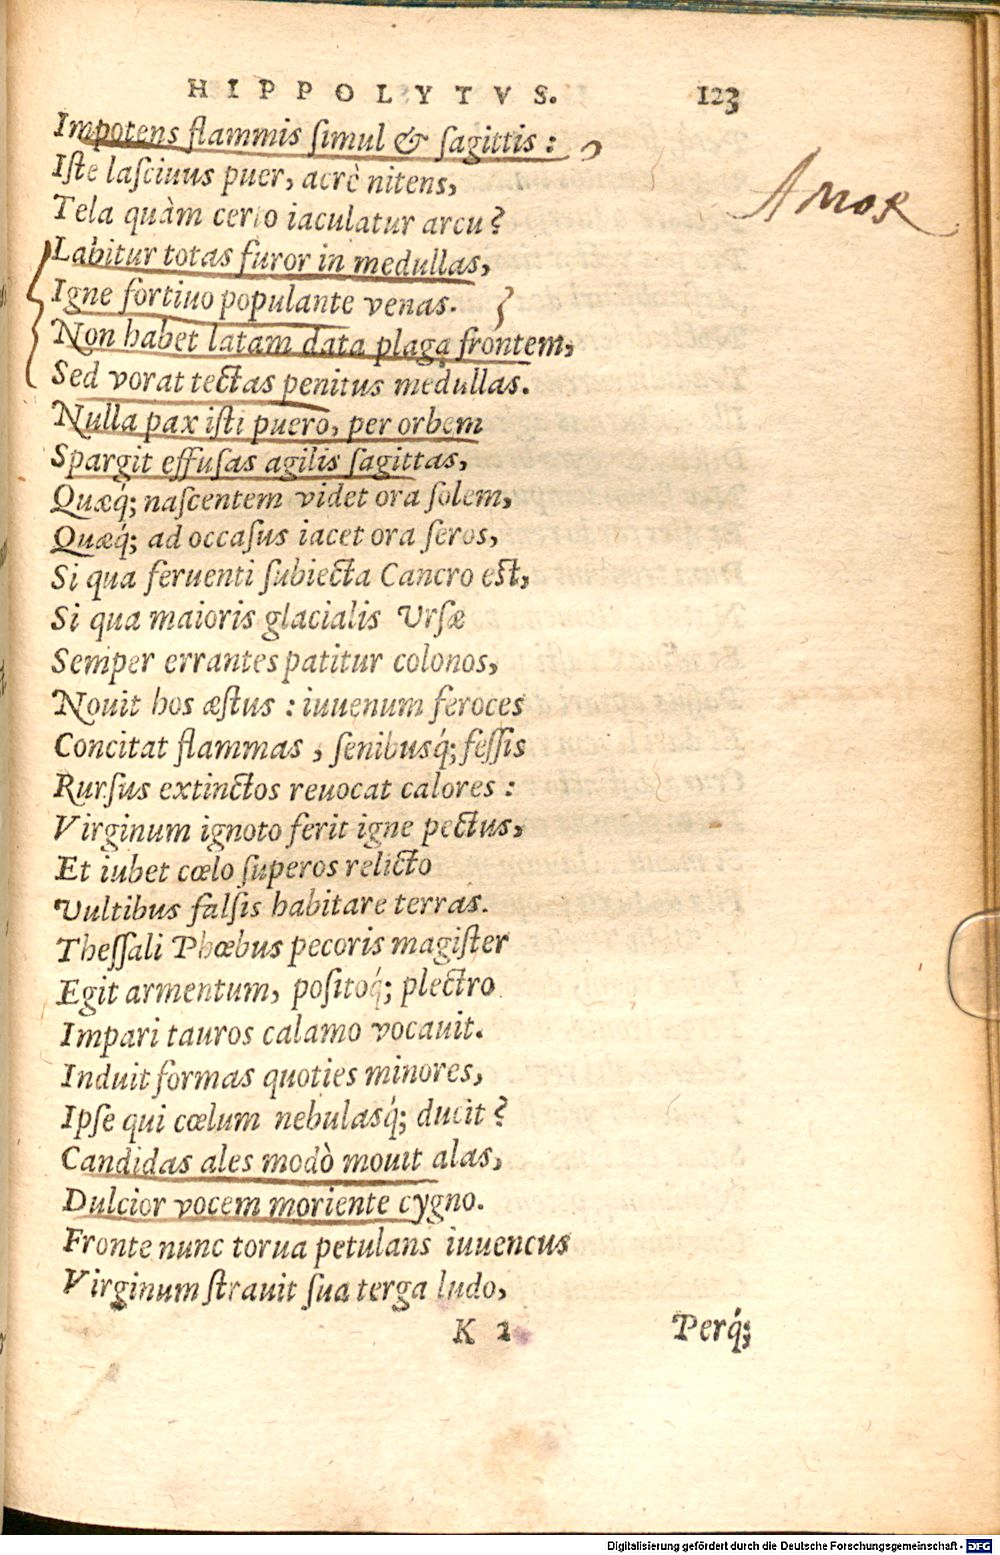 HIPPOLYTVS. 123
Impotens flammis ſimul & ſagittis:
Iſte laſciuus puer, acrè nitens,
Amor
Tela quàm certo iaculatur arcu?
Labitur totas furor in medullas,
Igne fortiuo populante venas.
Non habet latam data plaga frontem,
Sed vorat tectas penitus medullas.
Nulla pax iſti puero, per orbem
Spargit effuſas agilis ſagittas,
Quæq́; naſcentem videt ora ſolem,
Quæq́; ad occaſus iacet ora ſeros,
Si qua feruenti ſubiecta Cancro eſt,
Si qua maioris glacialis Vrſæ
Semper errantes patitur colonos,
Nouit hos æſtus: iuuenum feroces
Concitat flammas, ſenibusq́; feſſis
Rurſus extinctos reuocat calores:
Virginum ignoto ferit igne pectus,
Et iubet cœlo ſuperos relicto
Vultibus falſis habitare terras.
Theſſali Phœbus pecoris magiſter
Egit armentum, poſitoq́; plectro
Impari tauros calamo vocauit.
Induit formas quoties minores,
Ipſe qui cœlum nebulasq́; ducit?
Candidas ales modò mouit alas,
Dulcior vocem moriente cygno.
Fronte nunc torua petulans iuuencus
Virginum ſtrauit ſua terga ludo,
K 2 Perq́;
Digitalisierung gefördert durch die Deutsche Forschungsgemeinschaft - DFG